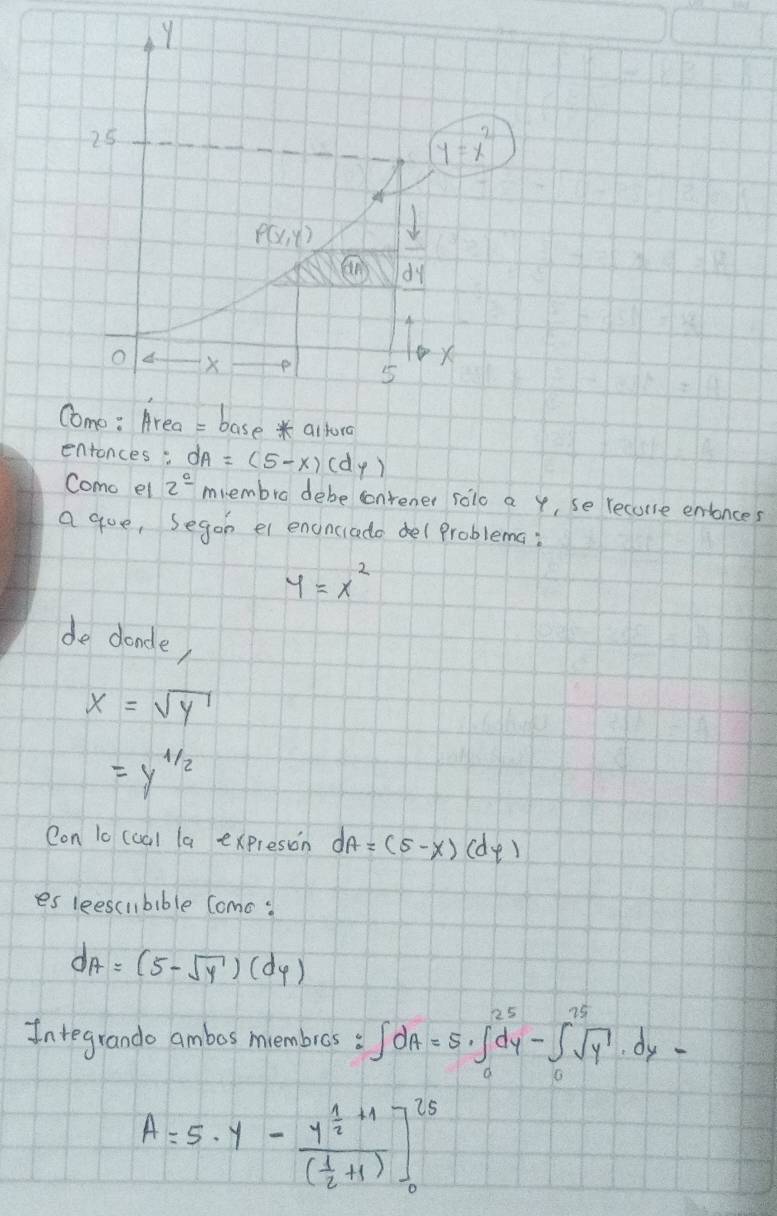 Y
25
y = x²
P(x,y)
dA
dy
0
x
5
X
Como: Área = base * altura
entonces: dA = (5-x)(dy)
Como el 2º miembro debe contener sólo a y, se recurre entonces
a que, según el enunciado del Problema:
y = x²
de donde,
x = √y
= y^1/2
Con lo cual la expresión dA = (5-x)(dy)
es reescribible como:
dA = (5-√y)(dy)
Integrando ambos miembros: ∫dA = 5·∫₀²⁵ dy - ∫₀²⁵ √y . dy -
A = 5 . y - y^(1/2 + 1) / (1/2 + 1) ]₀²⁵